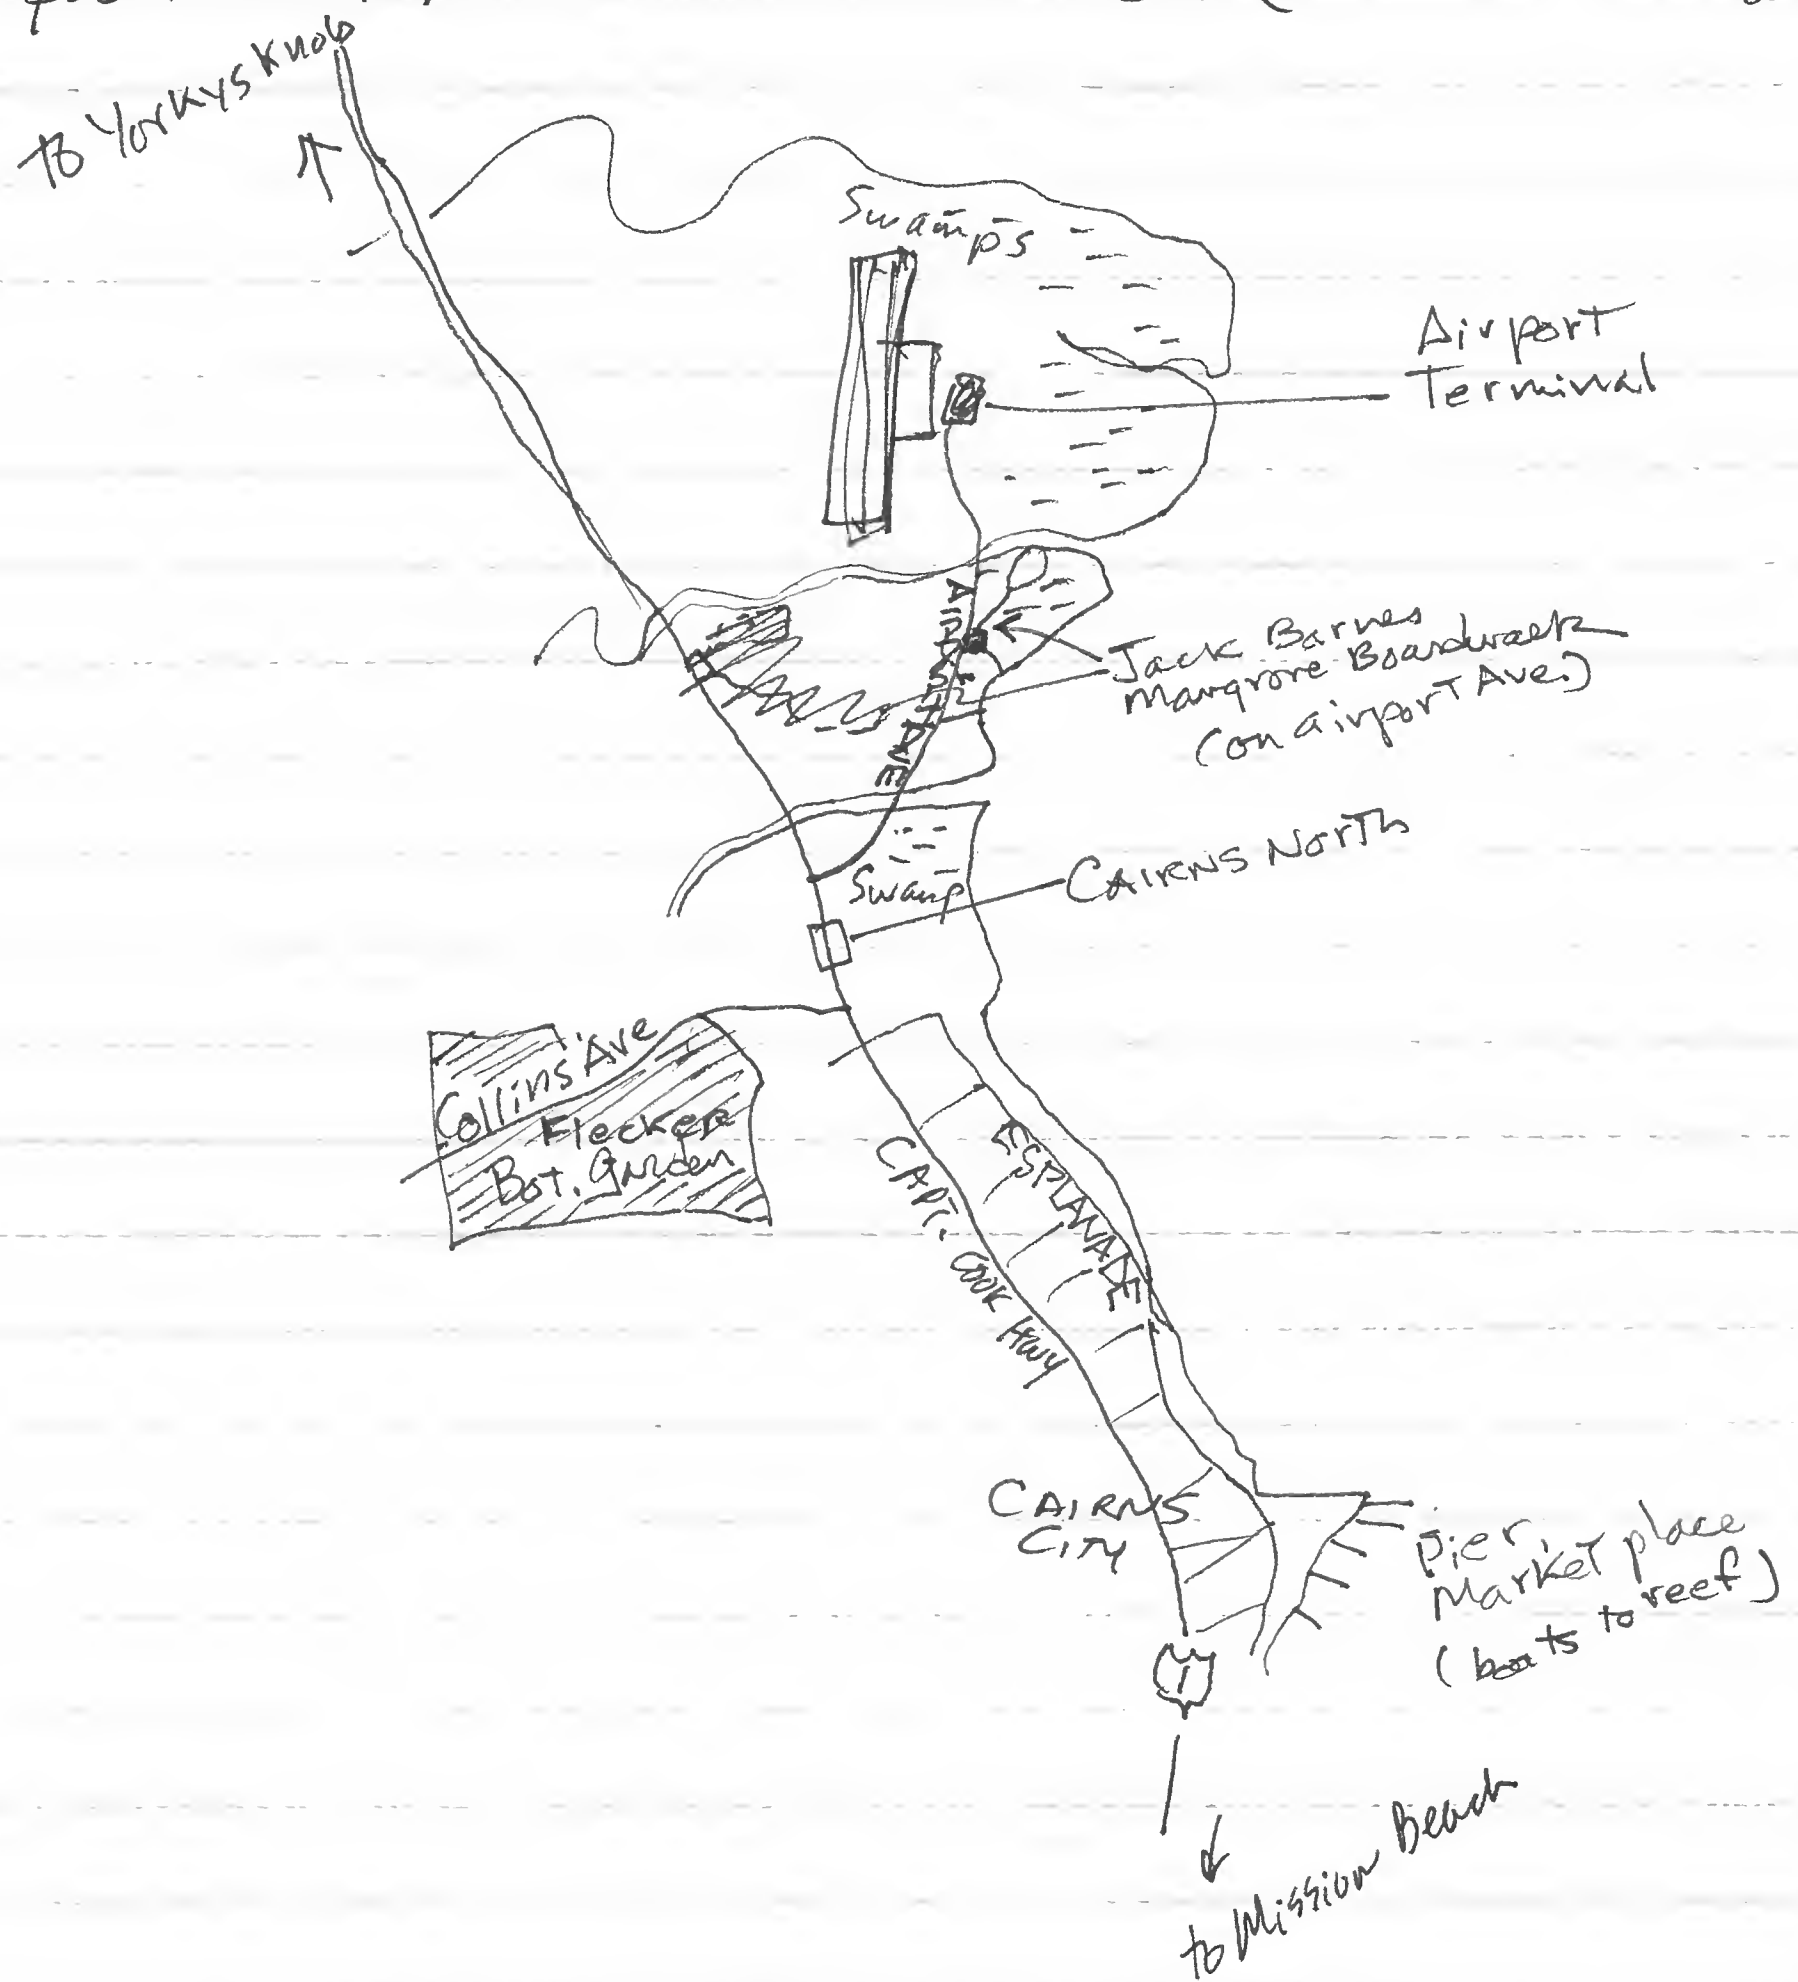 to Yorkys Knob
Swamps
Airport
Terminal
AIRPORT AVE
Jack Barnes
Mangrove Boardwalk
(on airport Ave.)
CAIRNS NORTH
Swamp
Collins Ave
Flecker
Bot. Garden
ESPLANADE
CAPT. COOK HWY
CAIRNS
CITY
Pier,
Market place
(boats to reef)
1
to Mission Beach